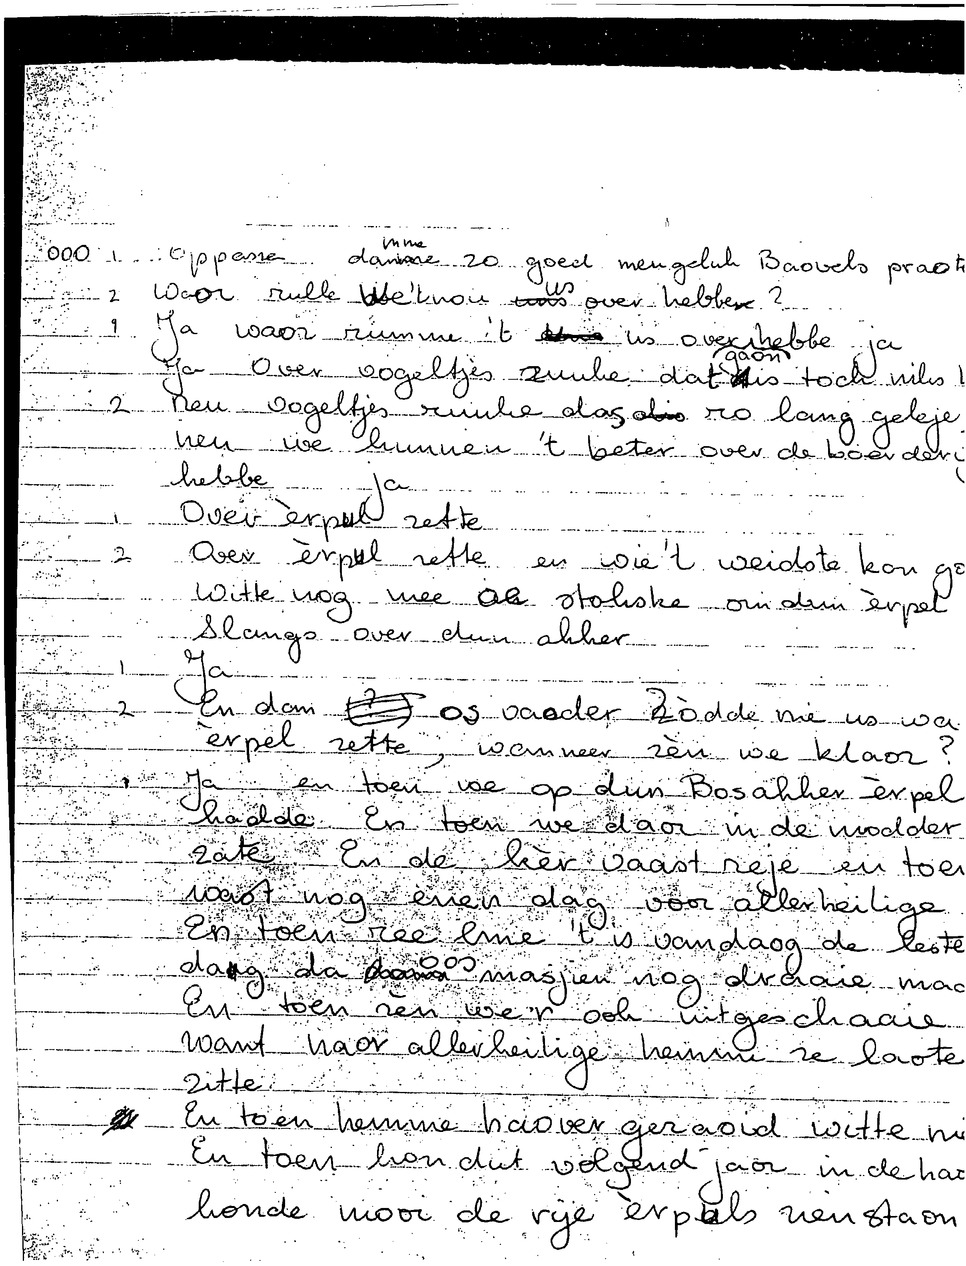 000 1 Oppasse damme mme zo goed mengeluk Baovels praote
2 Waor zulle We'tnou us over hebbe ?
1 Ja waor zumme 't us over hebbe ja
Ja Over vogeltjes zuuke dat gaon is toch niks
2 Neu vogeltjes zuuke das zo lang geleje
neu we kunnen 't beter over de boerderij
hebbe ja
1 Over èrpul zette
2 Over èrpul zette en wie't weidste kon go
Witte nog mee stokske omdun èrpel
Slangs over dun akker
1 Ja
2 En dan os vaoder Zòdde nie us wa
èrpel zette, wanneer zèn we klaor ?
1 Ja en toen we op dun Bosakker èrpel
hadde. En toen we daor in de modder
zate. En de kèr vaast reje en toen
wast nog enen dag voor allerheilige
En toen zee Ome 't is vandaog de leste
dag da oos masjien nog draaie mag
En toen zèn we'r ook uitgeschaaie
want naor allerheilige hemme ze laote
zitte.
En toen hemme haover gezaoid witte nie
En toen kon dut volgend jaor in de hao
konde mooi de rije èrpuls zien staon